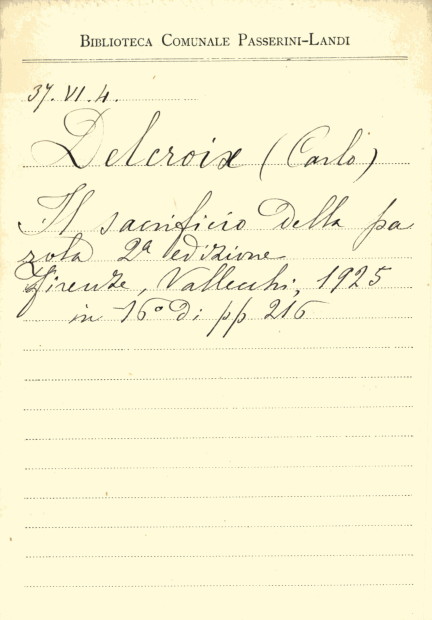 BIBLIOTECA COMUNALE PASSERINI-LANDI
37. VI. 4.
Delcroix (Carlo)
Il sacrificio della pa
rola 2ª edizione
Firenze, Vallecchi, 1925
in 16° di pp 216